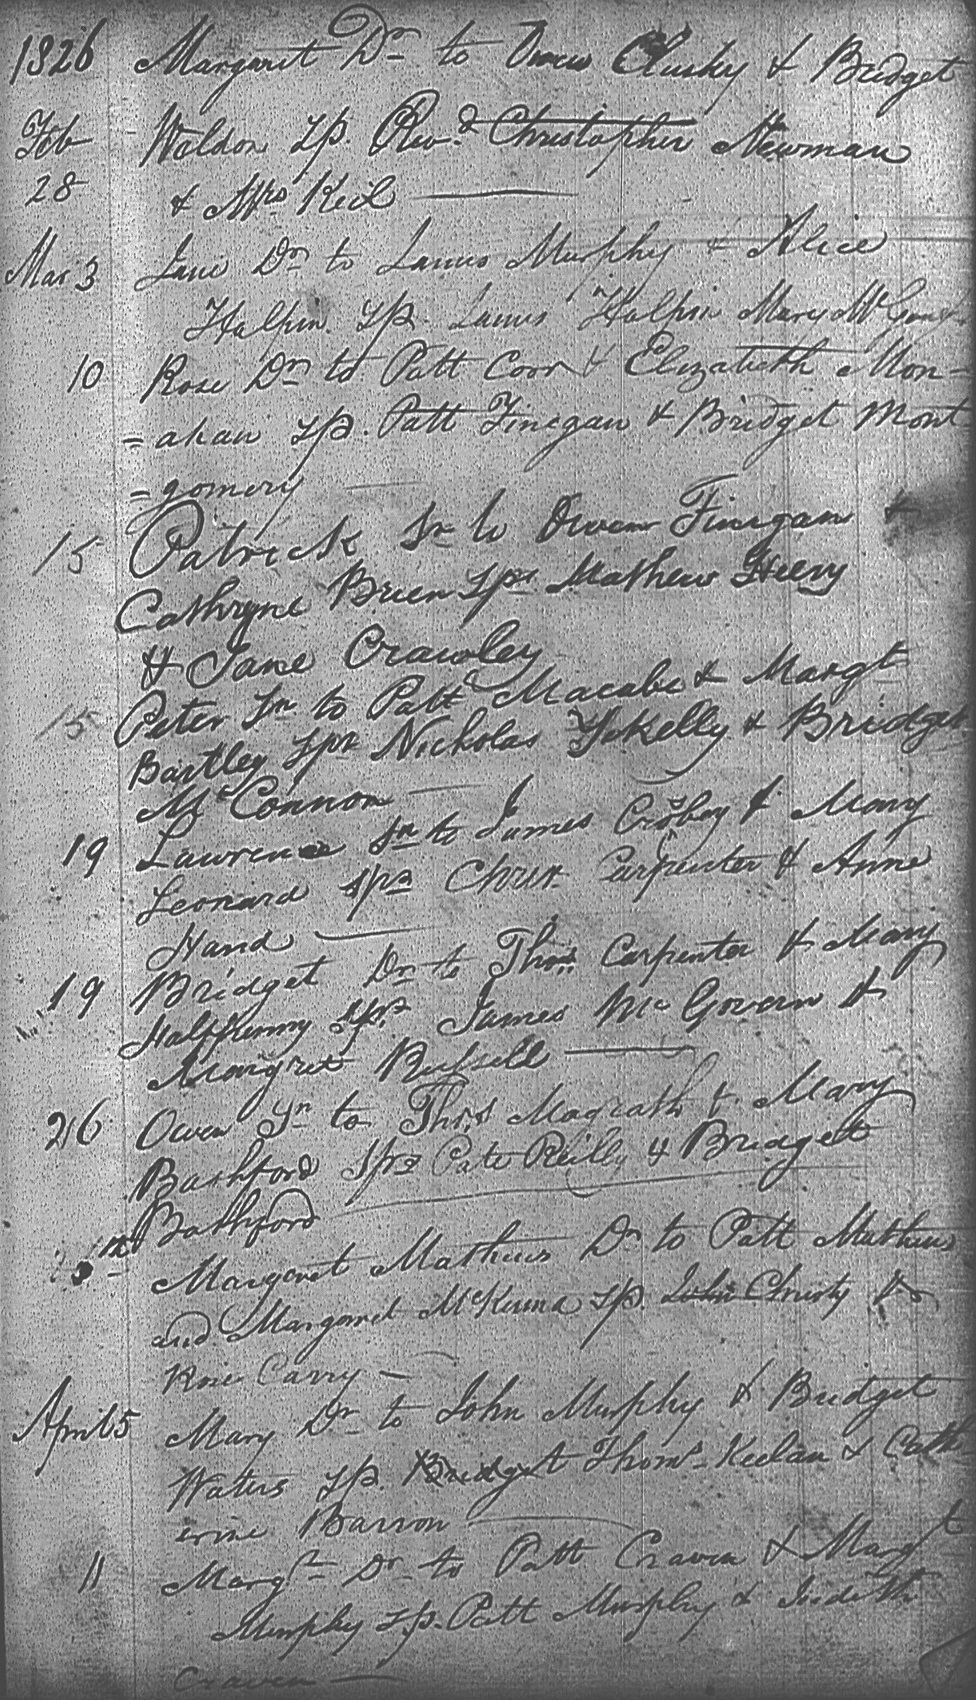 1826 Margaret Dr to Owen Clusky & Bridget
Feb Woldon Sp. Revd Christopher Newman
28 & Mrs Keil
Mar 3 Jane Dr to James Murphy & Alice
Halpin Sp. James Halpin Mary
10 Rose Dr to Patt Coor & Elizabeth Mon-
=ahan Sp. Patt Finegan & Bridget Mont
=gomery
15 Patrick Sn to Owen Finigan &
Cathryne Brien Sps Mathew Heery
& Jane Crawley
15 Peter Sn to Patt Macabe & Margt
Bartley Sps Nicholas Bridget
McConnon
19 Lawrence Sn to James Crosbey & Mary
Leonard Sps Chrisr Carpenter & Anne
Hand
19 Bridget Dr to Thos Carpenter & Mary
Halfpenny Sps James McGovern &
Margret Russell
26 Owen Sn to Thos Magrath & Mary
Bashford Sps Pate Reilly & Bridget
Bashford
Margaret Mathews Dr to Patt Mathews
and Margaret McKenna Sp. John Christy &
Rose Carry
April 5 Mary Dr to John Murphy & Bridget
Waters Sp. Bridget Thoms Keelan & Cath
erine Barron
11 Margt Dr to Patt Craven & Margt
Murphy Sp. Patt Murphy & Judith
Craven